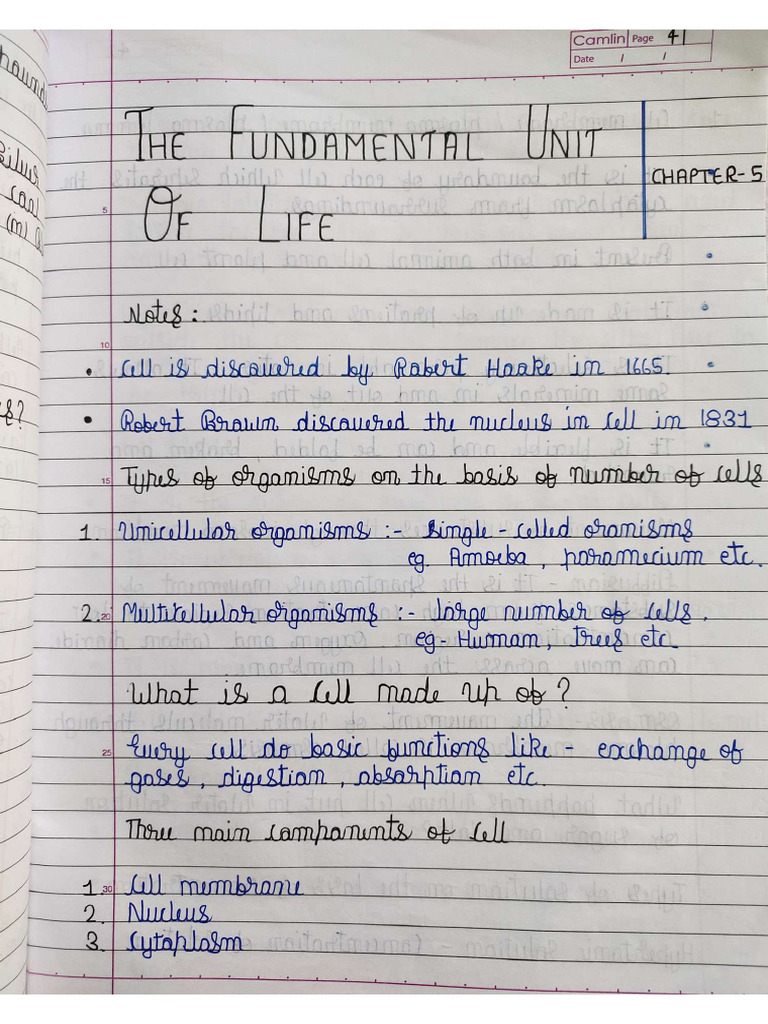 Camlin Page 41
Date / /
THE FUNDAMENTAL UNIT
CHAPTER-5
OF LIFE
Notes:
• Cell is discovered by Robert Hooke in 1665.
• Robert Brown discovered the nucleus in cell in 1831
Types of organisms on the basis of number of cells
1. Unicellular organisms :- single-celled oranisms
eg. Amoeba, paramecium etc.
2. Multicellular organisms :- large number of cells.
eg- Human, trees etc.
What is a cell made up of?
Every cell do basic functions like - exchange of
gases, digestion, absorption etc.
Three main components of cell
1. Cell membrane
2. Nucleus
3. Cytoplasm
5
10
15
20
25
30